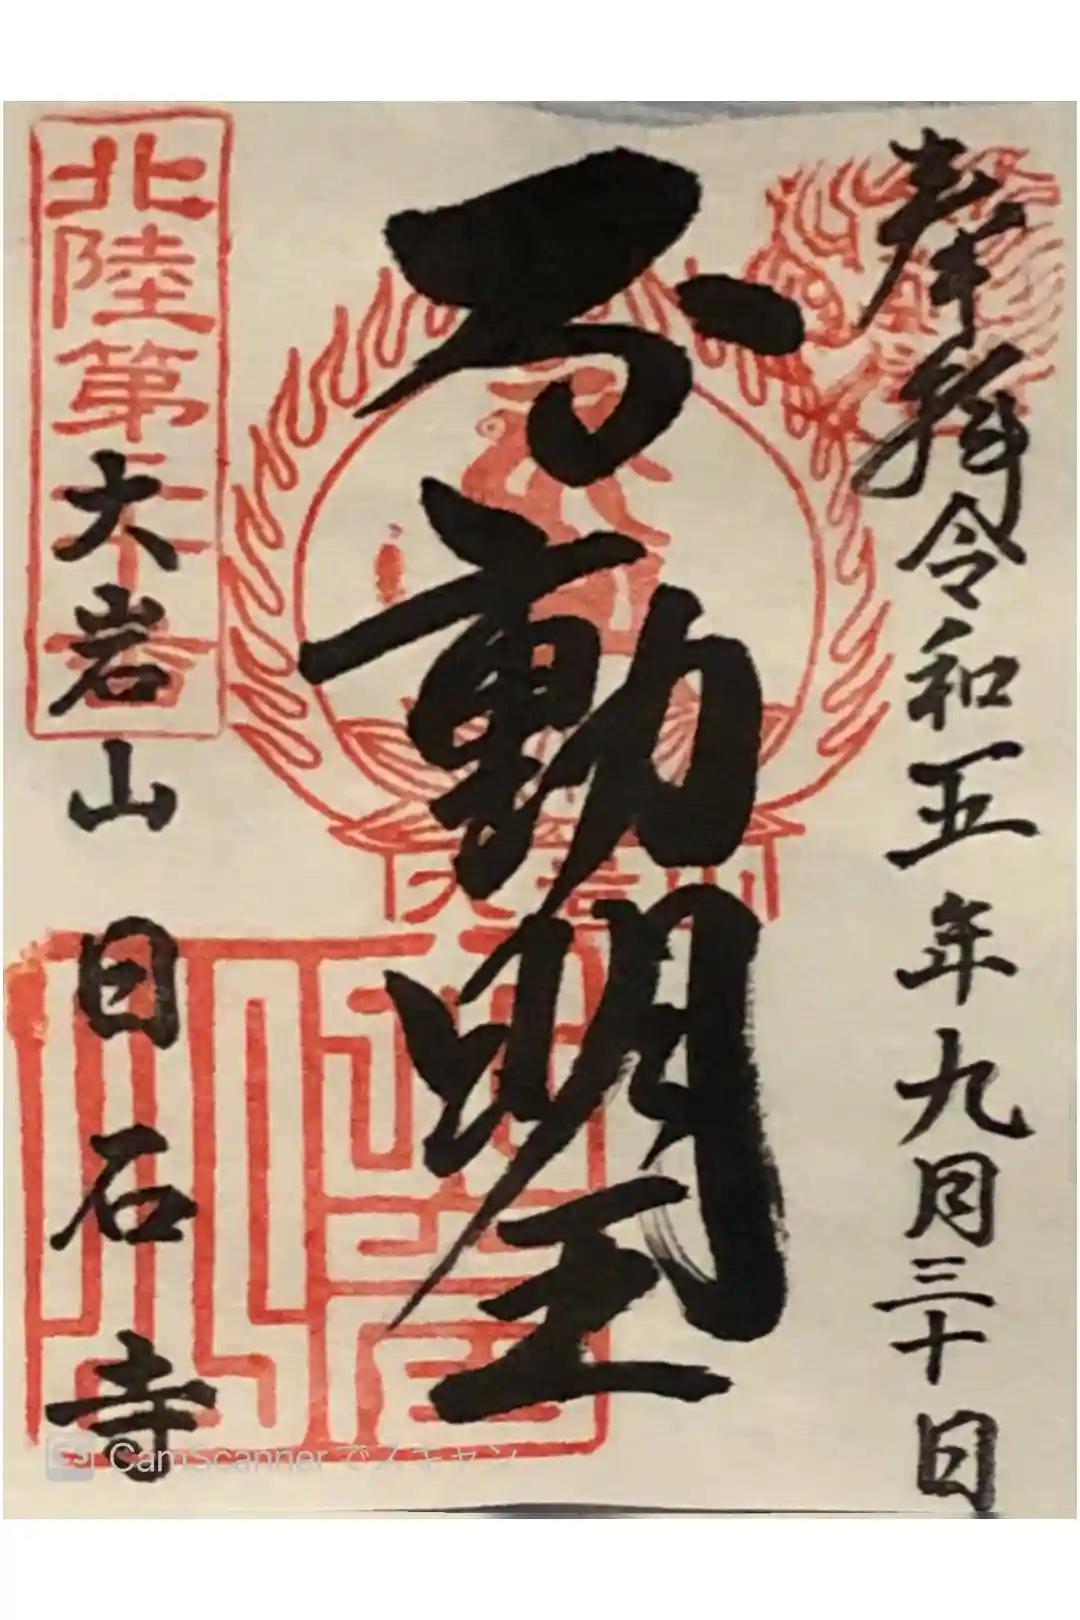 奉拝
令和五年九月三十日
不動明王
大岩山
北陸第二十番
大岩山 日石寺
CamScannerでスキャン